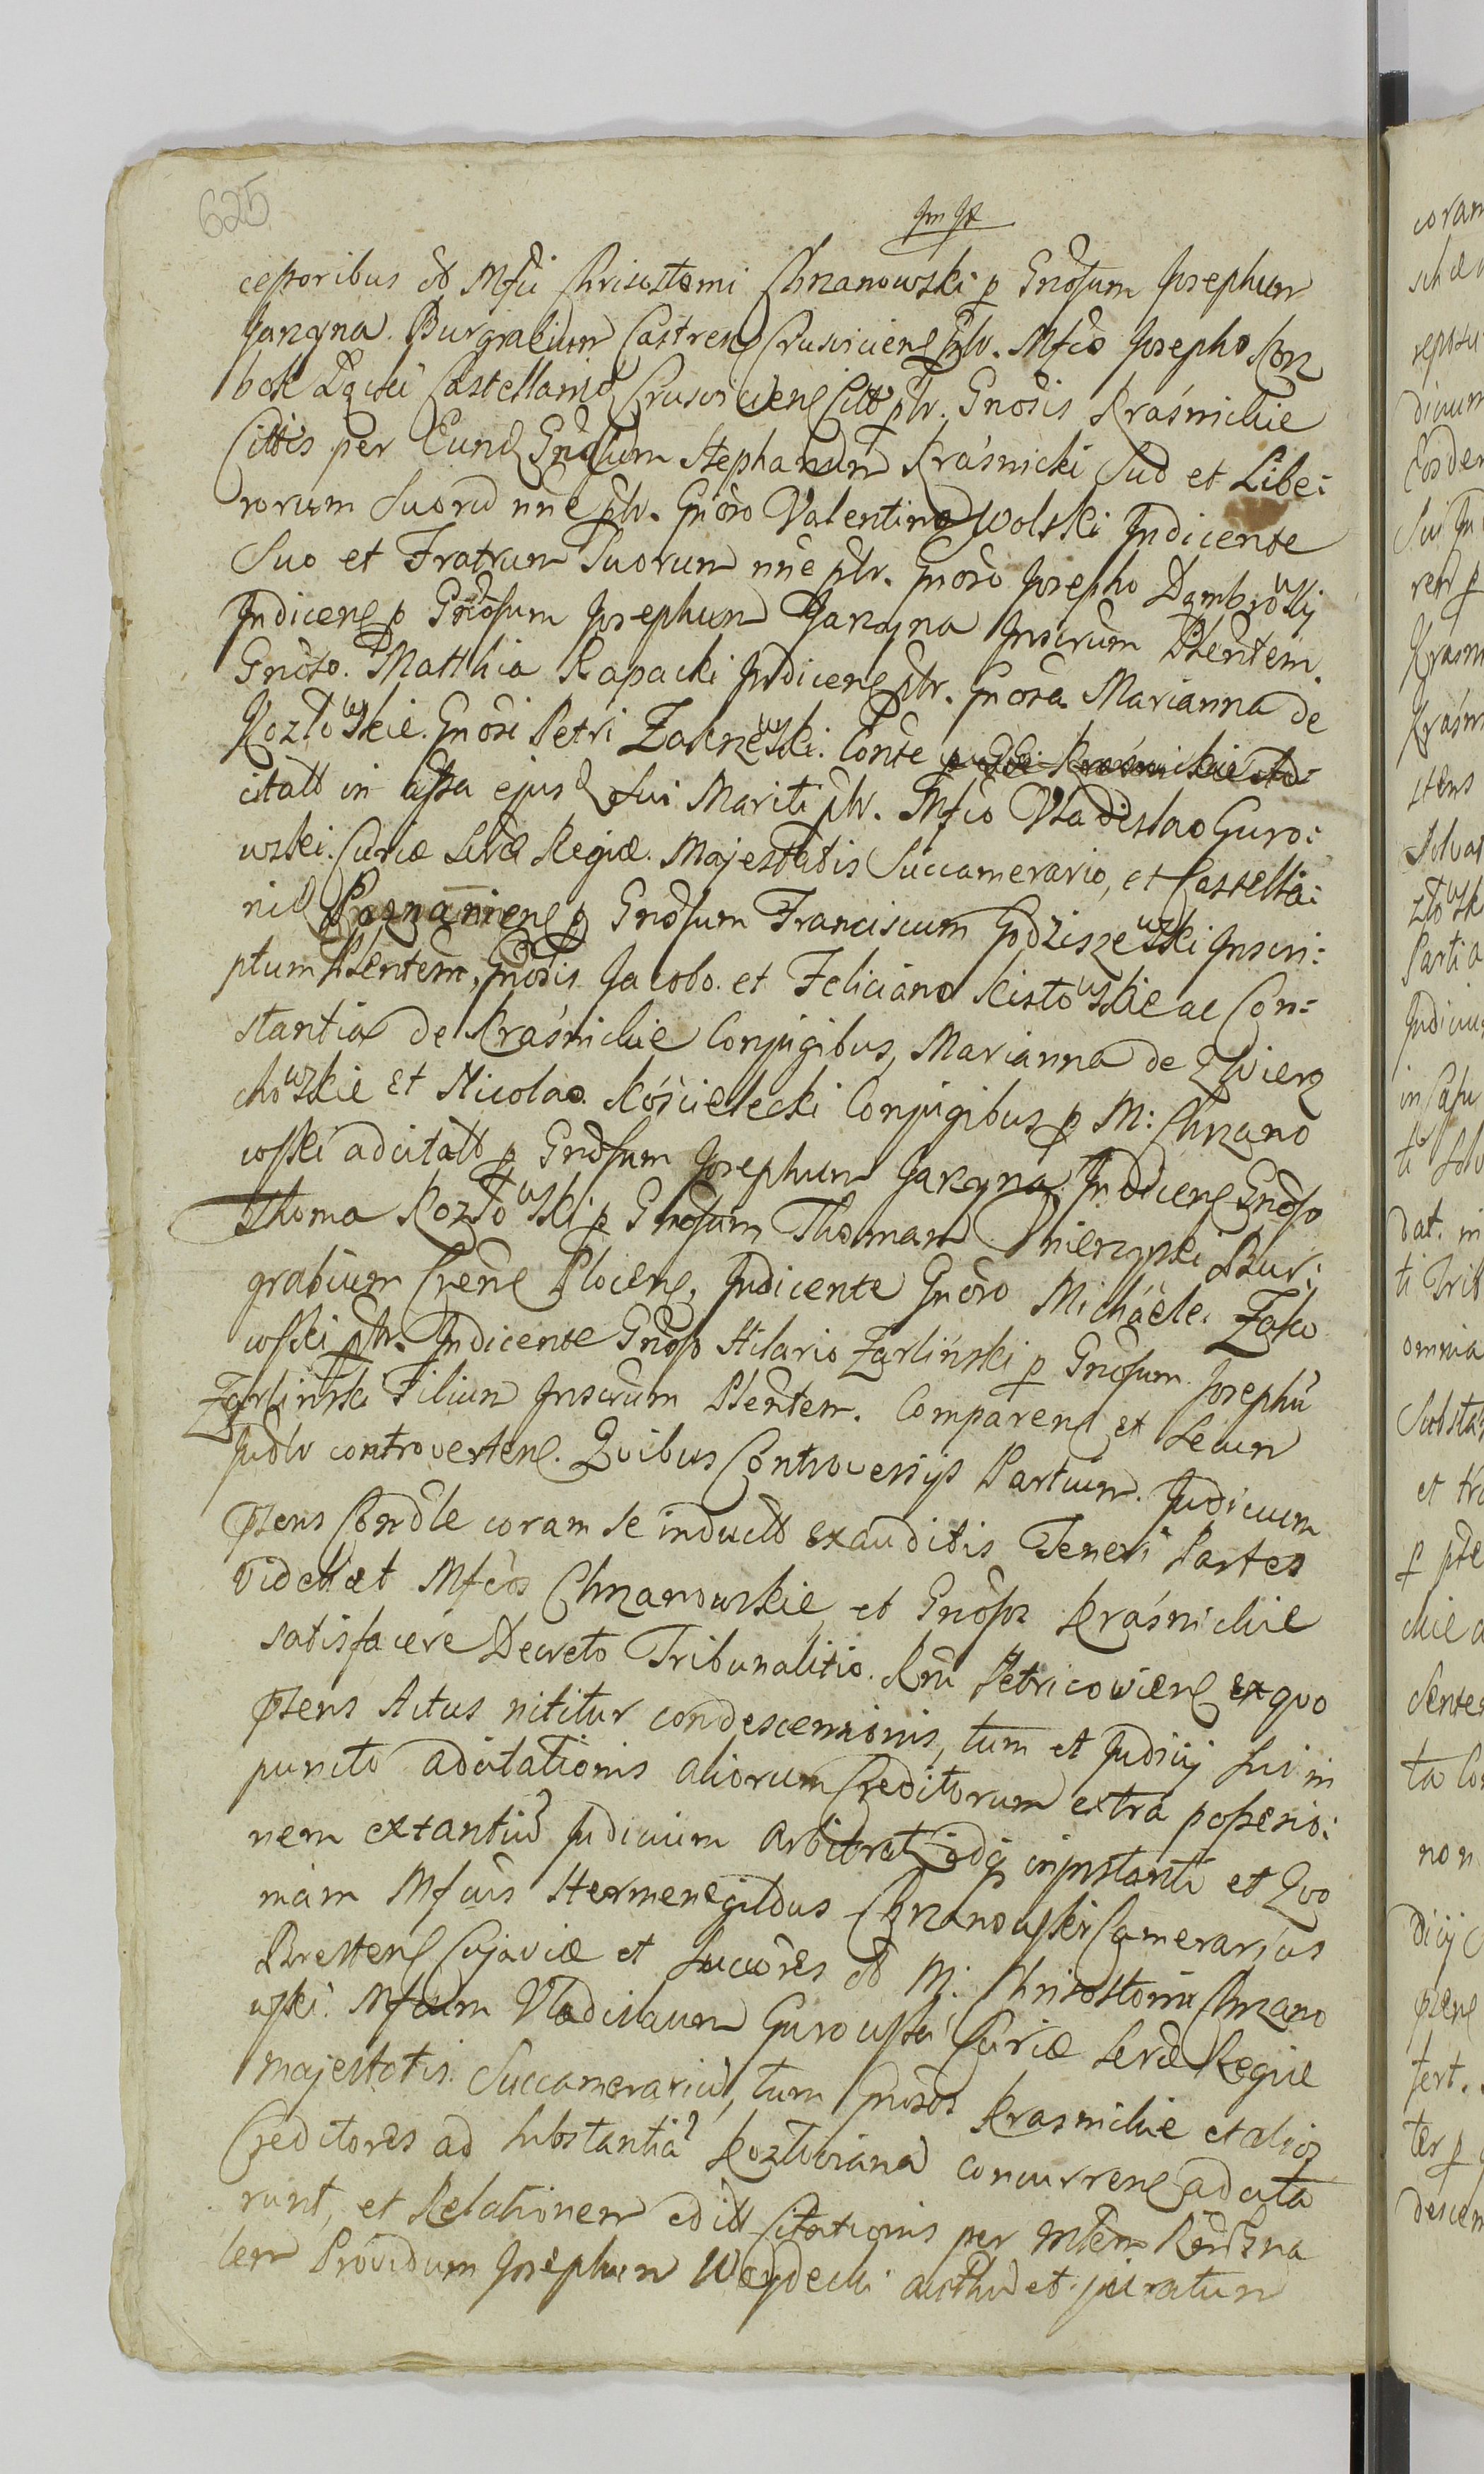 625
cessoribus ol Mfci Chrisostomi Chrzanowski p Gnosum Josephum
Jarzyna. Burgrabium Castren Crusvicien ptr. Mfco Josepho Kor
bok Łącki Castellanid Crusvicien Citt ptr. Gnosis Kraśnickie
Cittis per Eund Gnosum Stephanum Kraśnicki Suo et Libe:
rorum Suorum nne ptr. Gnoso Valentino Wolski Judicente
Suo et Fratrum Suorum nne ptr. Gnoso Josepho Dąmbrowski
Judicen p Gnosum Josephum Jarzyna Inscrum Plentem.
Gnoso. Matthia Rapacki Judicen ptr. Gnosa Marianna de
Kozłowskie. Gnosi Petri Zakrzewski. Conte
citatt in assa ejusd Sui Mariti ptr. Mfco Vladislao Guro:
wski. Curiæ Sræ Regiæ. Majestatis Succamerario, et Castella:
nid Poznanien p Gnosum Franciscum Godziszewski Inscri:
ptum Plentem, Gnosis Jacobo. et Feliciano Kistowskie ac Con=
stantia de Kraśnickie Conjugibus, Marianna de Zwierz
chowskie et Nicolao. Kościelecki Conjugibus p M: Chrzano
wski adcitatt p Gnosum Josephum Jarzyna Judicen Gnoso
Thoma Kozłowski p Gnosum Thomam Bur:
grabium Cren Plocen, Judicente Gnoso Michaele. Zakr
wski ptr. Judicente Gnoso Hilario Zarliński p Gnosum Josephũ
Zarliński Filium Inscrum Plentem. Comparen et Secum
Judlr controverten. Quibus Controversijs Partium. Judicium
Psens Condle coram se induclt exauditis Teneri Partes
videlicet Mfcos Chrzanowskie, et Gnosos Kraśnickie
satisfacere Decreto Tribunalitio. Rni Petricovien ex quo
Psens Actus nititur condescensionis, tum et Judicij Sui in
puncto adcitationis aliorum Creditorum extra possessio:
nem extantiu Judicium arbitrat, idq inpstanti et Quo
niam Mfcus Hermenegildus Chrzanowski Camerarius
Bresten Cujaviæ et Succores ol M: Chrisostomi Chrzano
wski. Mfcum Vladislaum Gurowski Curiæ Sræ Regiæ
Majestatis. Succamerariu, tum Gnosos Krasnickie et alios
Creditores ad Substantia Kozłoviana concurren adcita
runt, et Relationem editt Citationis per Mtem
lem Providum Josephum Waydecki et juratum